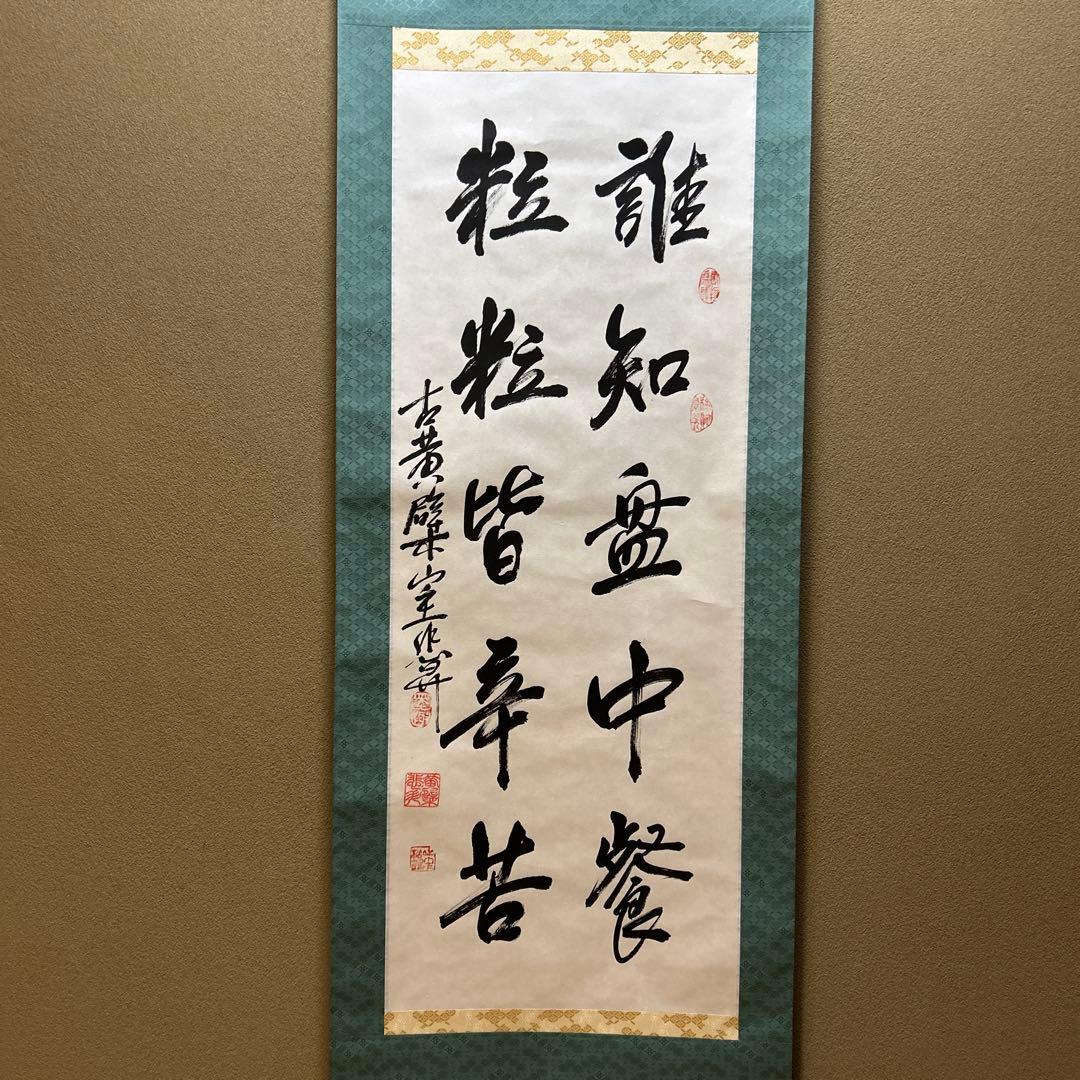 誰知盤中餐
粒粒皆辛苦
古黄檗山主